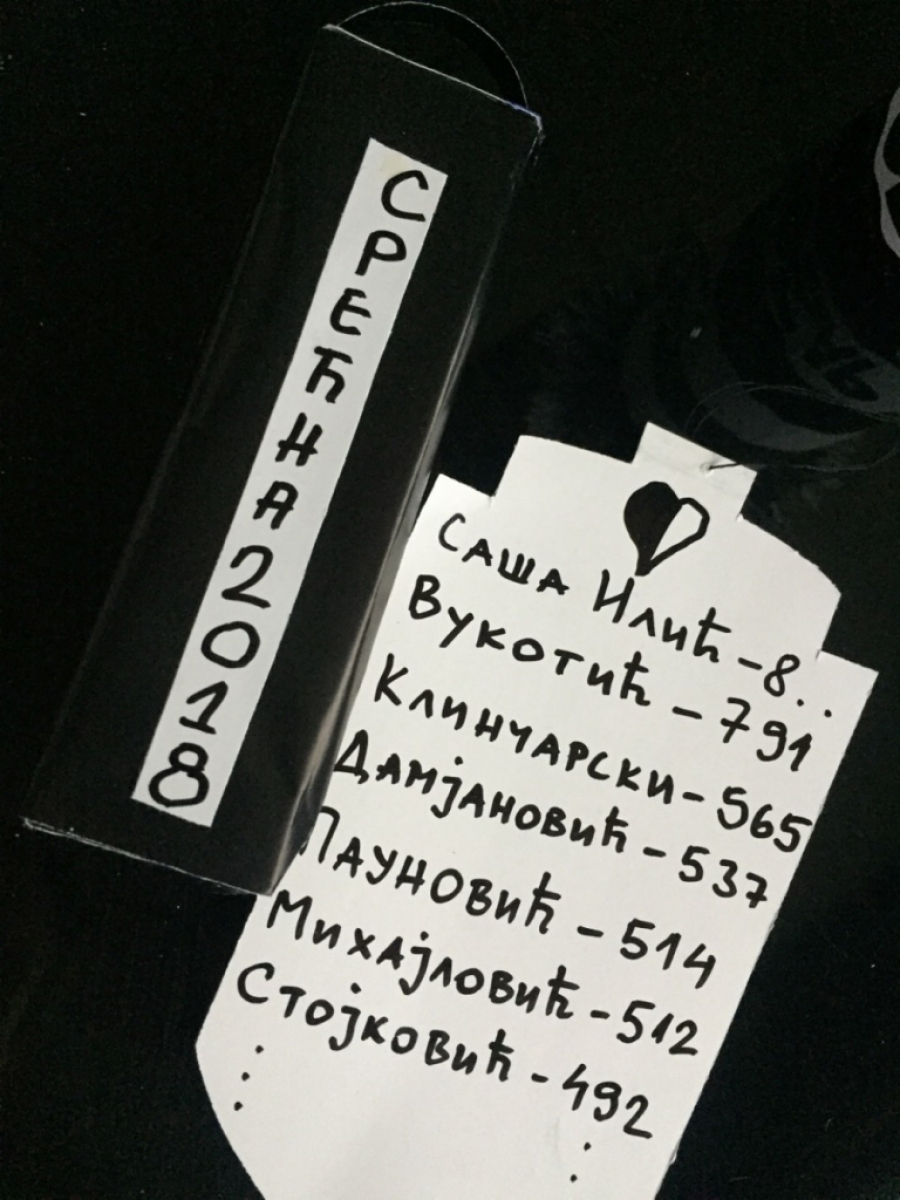 СРЕЋНА2018
САША ИЛИЋ - 8..
ВУКОТИЋ - 791
КЛИНЧАРСКИ - 565
ДАМЈАНОВИЋ - 537
ПАУНОВИЋ - 514
МИХАЈЛОВИЋ - 512
СТОЈКОВИЋ - 492